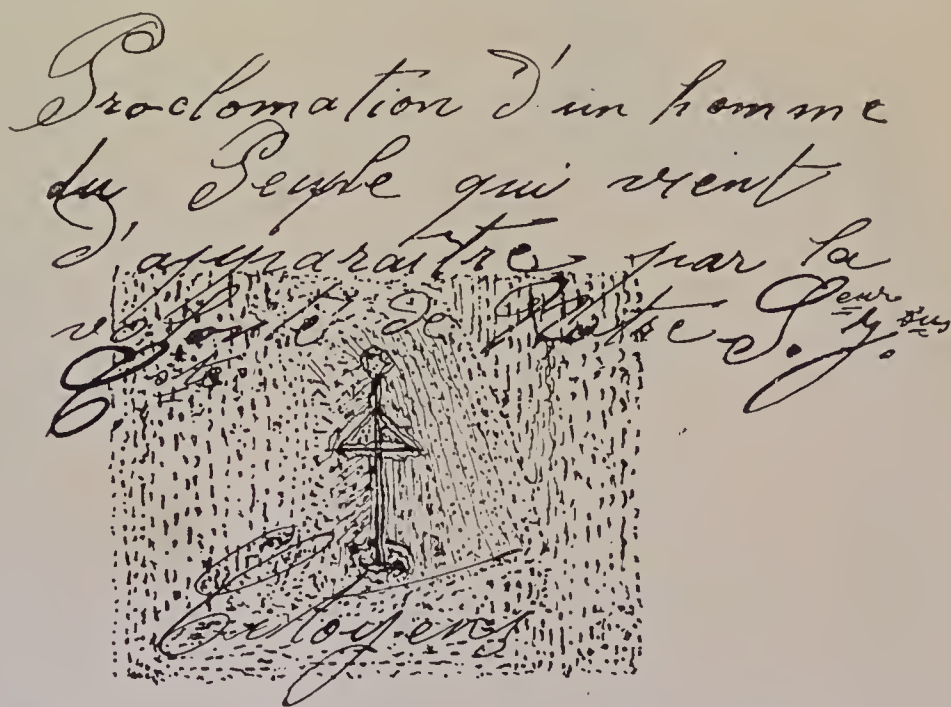 Proclomation d'un homme
du Peuple qui vient
d'apparaître par la
volonté de Notre S.eur J.ésus
C.
Citoyens